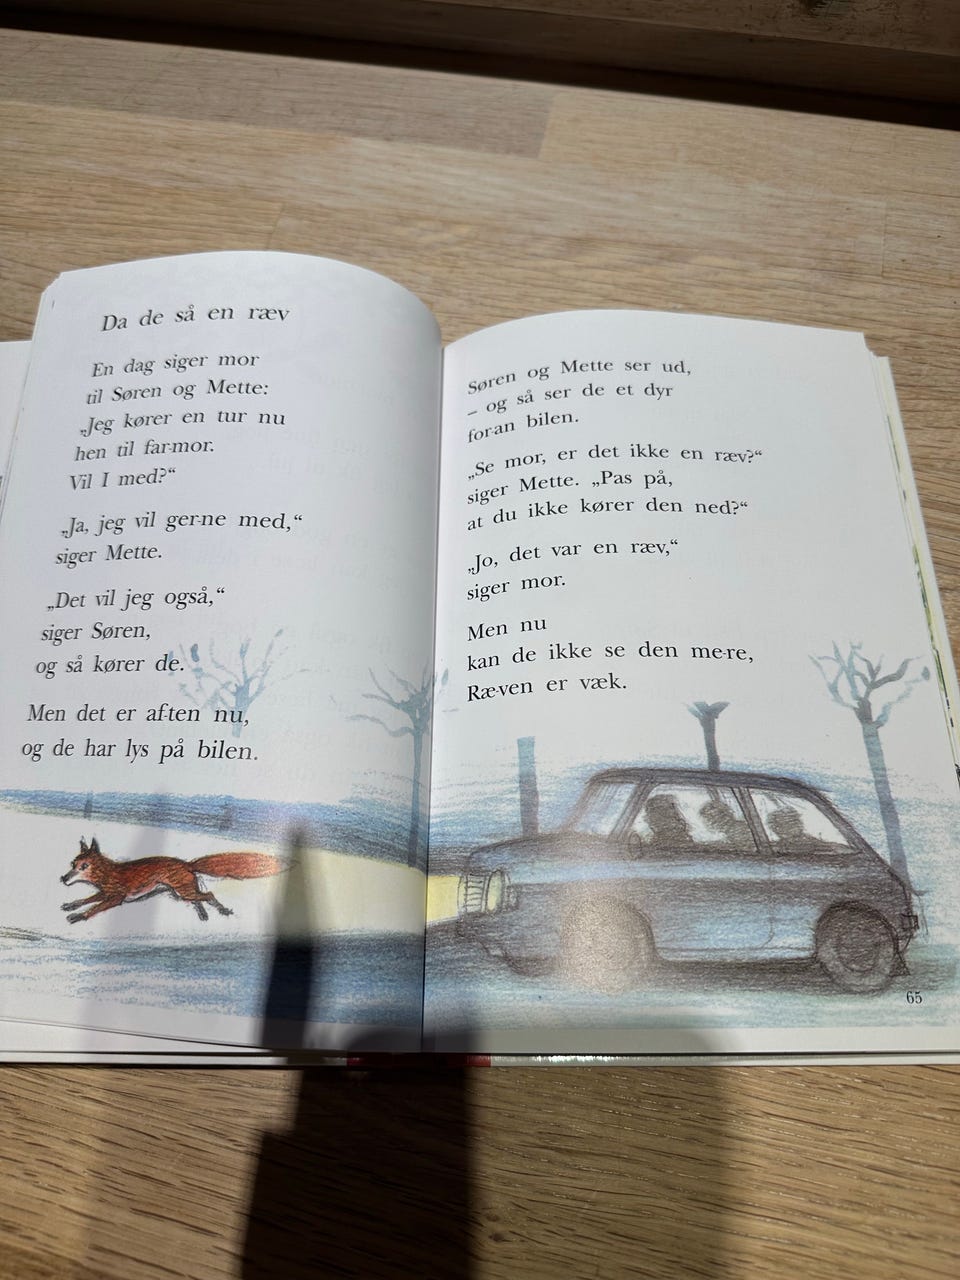 Da de så en ræv
En dag siger mor
til Søren og Mette:
„Jeg kører en tur nu
hen til far-mor.
Vil I med?“
„Ja, jeg vil ger-ne med,“
siger Mette.
„Det vil jeg også,“
siger Søren,
og så kører de.
Men det er af-ten nu,
og de har lys på bilen.
Søren og Mette ser ud,
– og så ser de et dyr
for-an bilen.
„Se mor, er det ikke en ræv?“
siger Mette. „Pas på,
at du ikke kører den ned?“
„Jo, det var en ræv,“
siger mor.
Men nu
kan de ikke se den me-re,
Ræ-ven er væk.
65